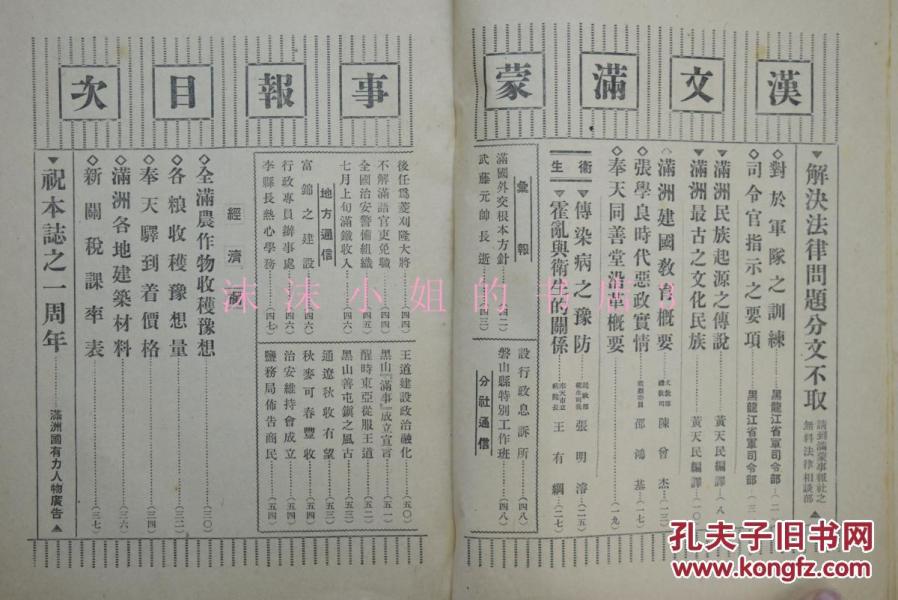 漢文滿蒙事報目次
▼解決法律問題分文不取 請到滿蒙事報社之無料法律相談部▲
◇對於軍隊之訓練……黑龍江省軍司令部…(二)
◇司令官指示之要項……黑龍江省軍司令部…(三)
▼滿洲民族起源之傳說……黃天民編譯…(八)
▼滿洲最古之文化民族……黃天民編譯…(一〇)
◇滿洲建國敎育概要……陳曾杰…(一三)
◇張學良時代惡政實情……邵鴻基…(一七)
◇奉天同善堂沿革概要……(一九)
衛生
▼傳染病之豫防……張明濬…(二五)
▼霍亂與衛生的關係……王有綱…(二七)
彙報
滿國外交根本方針……(四二)
武藤元帥長逝……(四三)
設行政息訴所……(四八)
磐山縣特別工作班……(四八)
分社通信
後任爲菱刈隆大將……(四四)
不解滿語官吏免職……(四四)
全國治安警備組織……(四五)
七月上旬滿鐵收入……(四六)
地方通信
富錦之建設……(四六)
行政專員辦事處……(四六)
李縣長熱心學務……(四七)
王道建設政治融化……(五〇)
黑山『滿事』成立宣言……(五一)
醒時東亞從服王道……(五二)
黑山善屯鎭之風古……(五二)
通遼秋收有望……(五三)
秋麥可春豐收……(五四)
治安維持會成立……(五四)
鹽務局佈告商民……(五四)
經濟
◇全滿農作物收穫豫想……(三〇)
◇各粮收穫豫想量……(三二)
◇奉天驛到着價格……(三四)
◇滿洲各地建築材料……(三六)
◇新關稅課率表……(三七)
▼祝本誌之一周年……滿洲國有力人物廣告▲
沫沫小姐的书店
孔夫子旧书网
www.kongfz.com